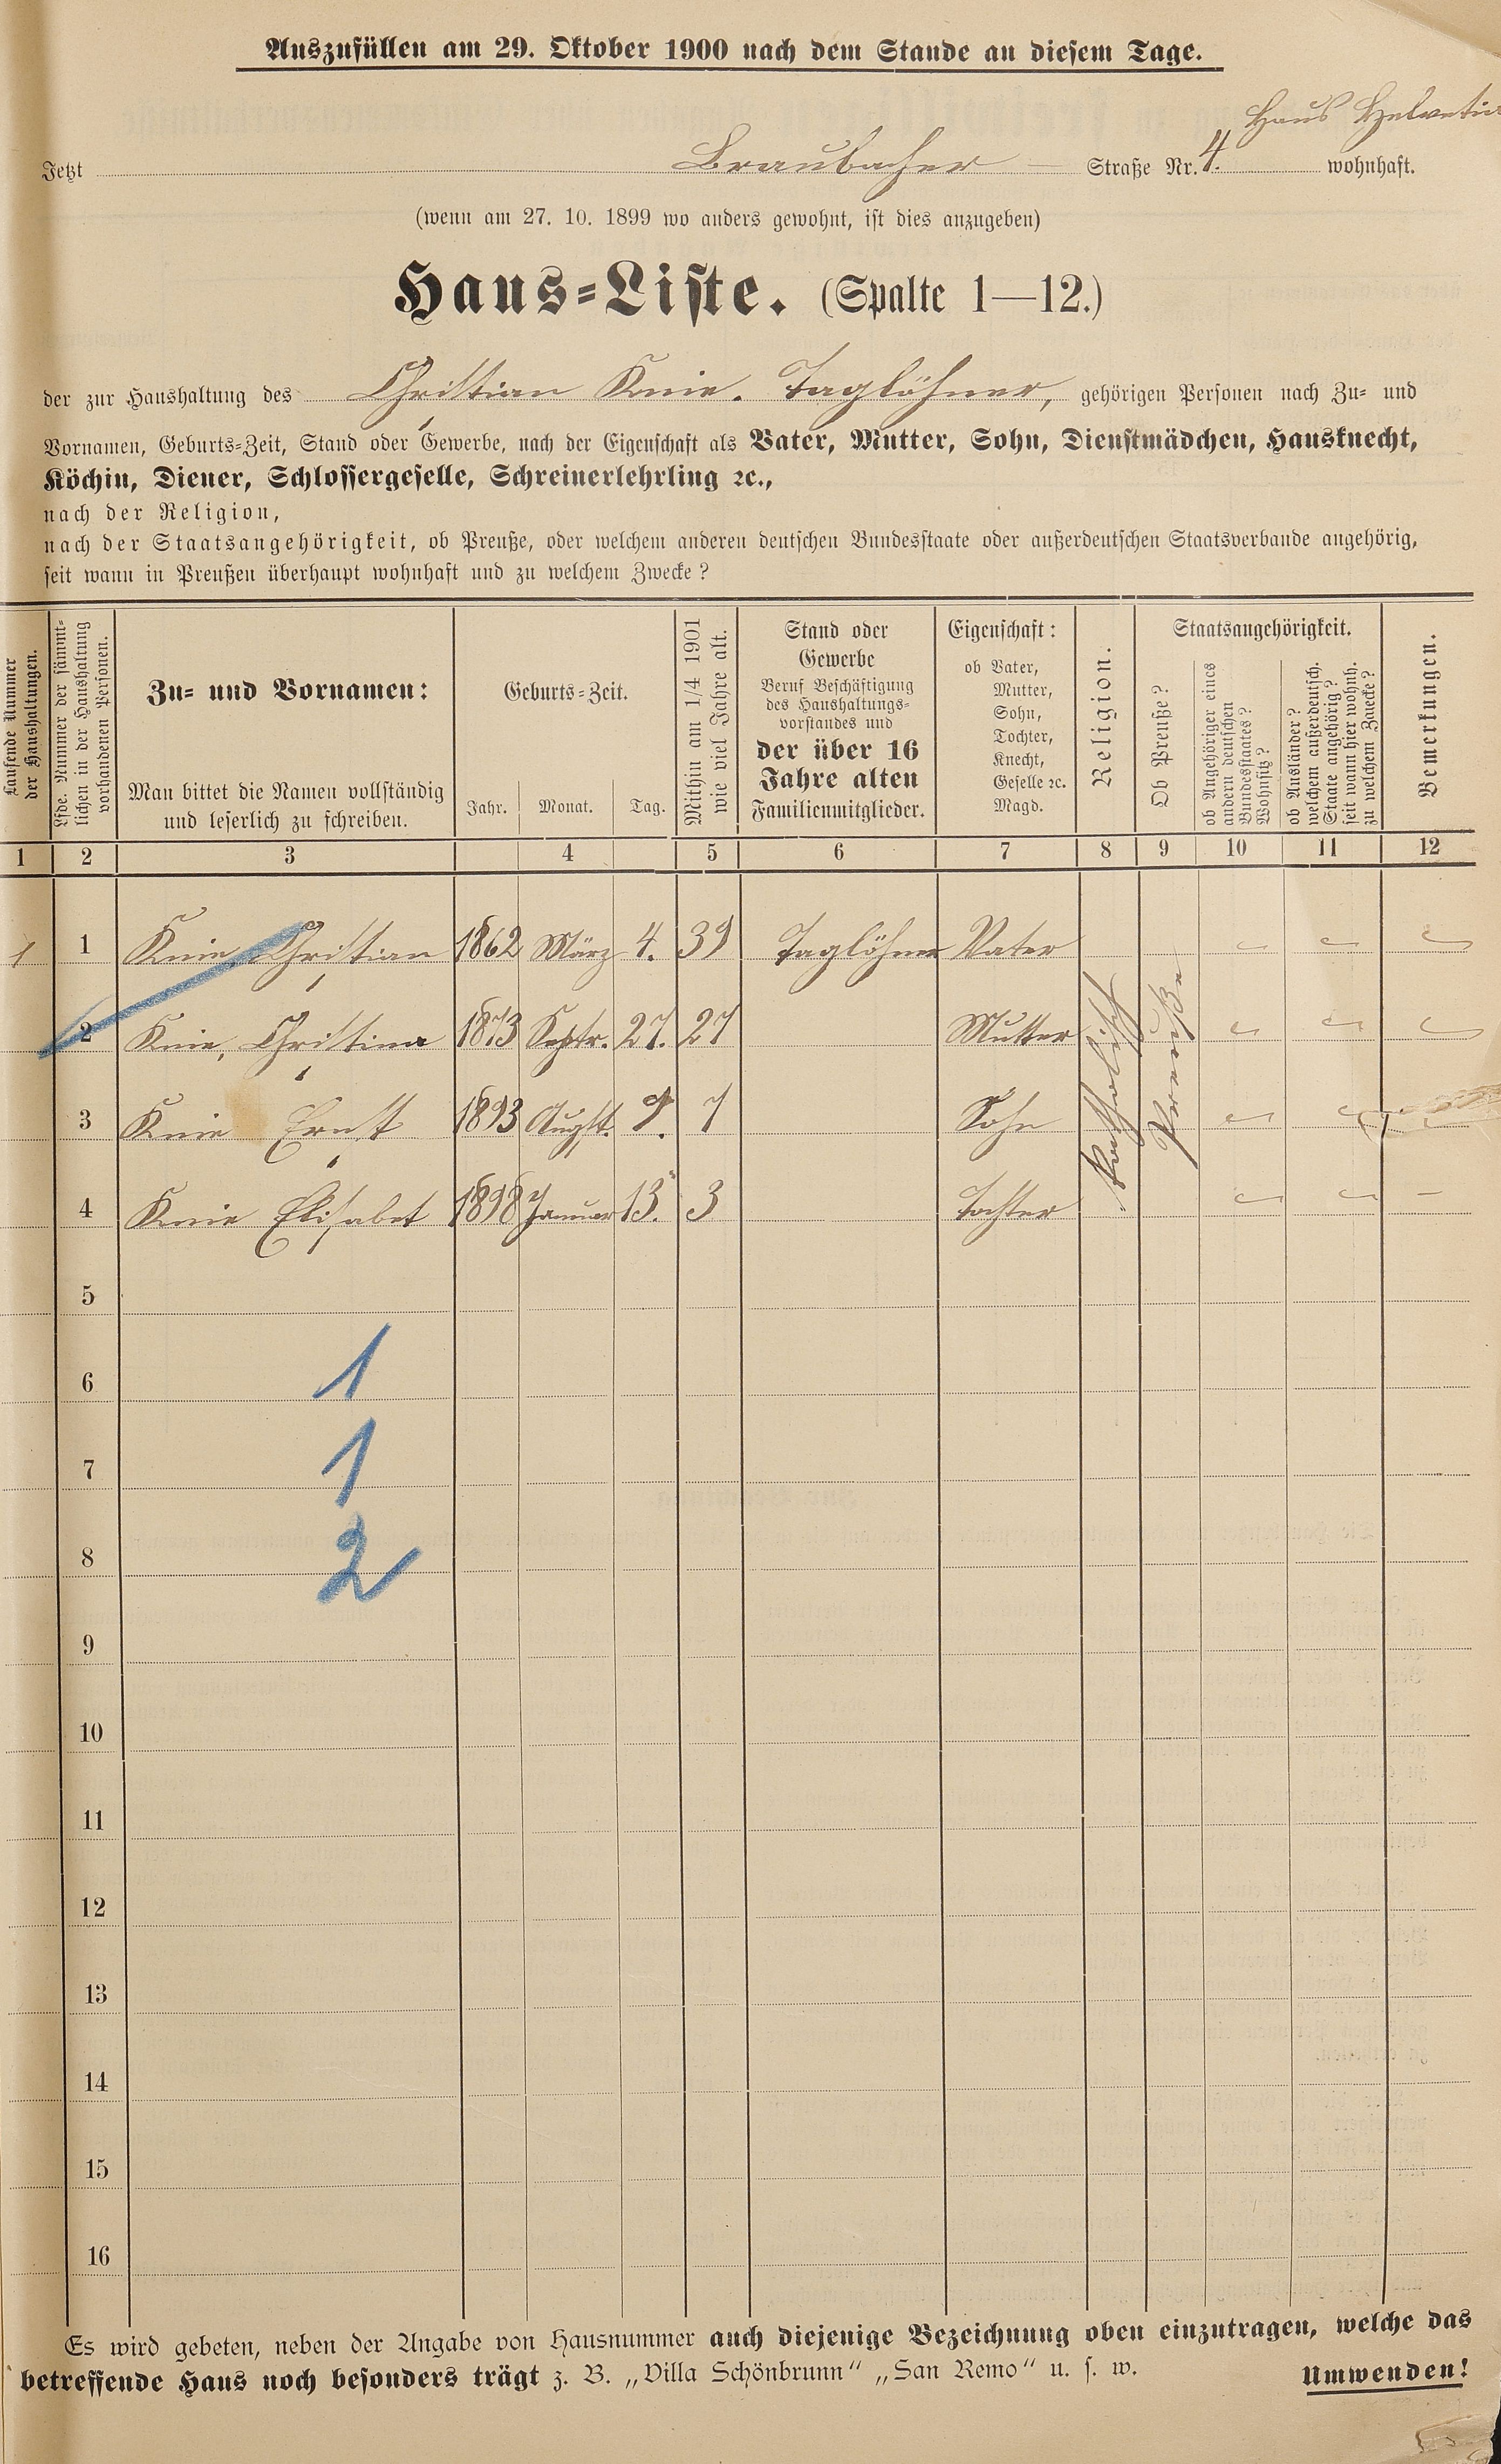 Auszufüllen am 29. Oktober 1900 nach dem Stande an diesem Tage.
Haus Helvetia
Jetzt Braubacher — Straße Nr. 4. wohnhaft.
(wenn am 27. 10. 1899 wo anders gewohnt, ist dies anzugeben)
Haus-Liste. (Spalte 1—12.)
der zur Haushaltung des Christian Knie. Taglöhner, gehörigen Personen nach Zu- und
Vornamen, Geburts-Zeit, Stand oder Gewerbe, nach der Eigenschaft als Vater, Mutter, Sohn, Dienstmädchen, Hausknecht,
Köchin, Diener, Schlossergeselle, Schreinerlehrling ꝛc.,
nach der Religion,
nach der Staatsangehörigkeit, ob Preuße, oder welchem anderen deutschen Bundesstaate oder außerdeutschen Staatsverbande angehörig,
seit wann in Preußen überhaupt wohnhaft und zu welchem Zwecke?
Laufende Nummer
der Haushaltungen.
Lfde. Nummer der sämmt-
lichen in der Haushaltung
vorhandenen Personen.
Zu- und Vornamen:
Man bittet die Namen vollständig
und leserlich zu schreiben.
Geburts-Zeit.
Jahr. Monat. Tag.
Mithin am 1/4 1901
wie viel Jahre alt.
Stand oder
Gewerbe
Beruf Beschäftigung
des Haushaltungs-
vorstandes und
der über 16
Jahre alten
Familienmitglieder.
Eigenschaft:
ob Vater,
Mutter,
Sohn,
Tochter,
Knecht,
Geselle ꝛc.
Magd.
Religion.
Staatsangehörigkeit.
Ob Preuße?
ob Angehöriger eines
andern deutschen
Bundesstaates?
Wohnsitz?
ob Ausländer?
welchem außerdeutsch.
Staate angehörig?
seit wann hier wohnh.
zu welchem Zwecke?
Bemerkungen.
1 2 3 4 5 6 7 8 9 10 11 12
1 1 Knie, Christian 1862 März 4. 39 Taglöhner Vater
2 Knie, Christina 1873 Septr. 27. 27 Mutter
3 Knie Ernst 1893 Augst. 9. 7 Sohn
4 Knie Elisabet 1898 Januar 13. 3 Tochter –
katholisch
Preuße
5
6 1
7 1
8 2
9
10
11
12
13
14
15
16
Es wird gebeten, neben der Angabe von Hausnummer auch diejenige Bezeichnung oben einzutragen, welche das
betreffende Haus noch besonders trägt z. B. „Villa Schönbrunn“ „San Remo“ u. s. w. Umwenden!